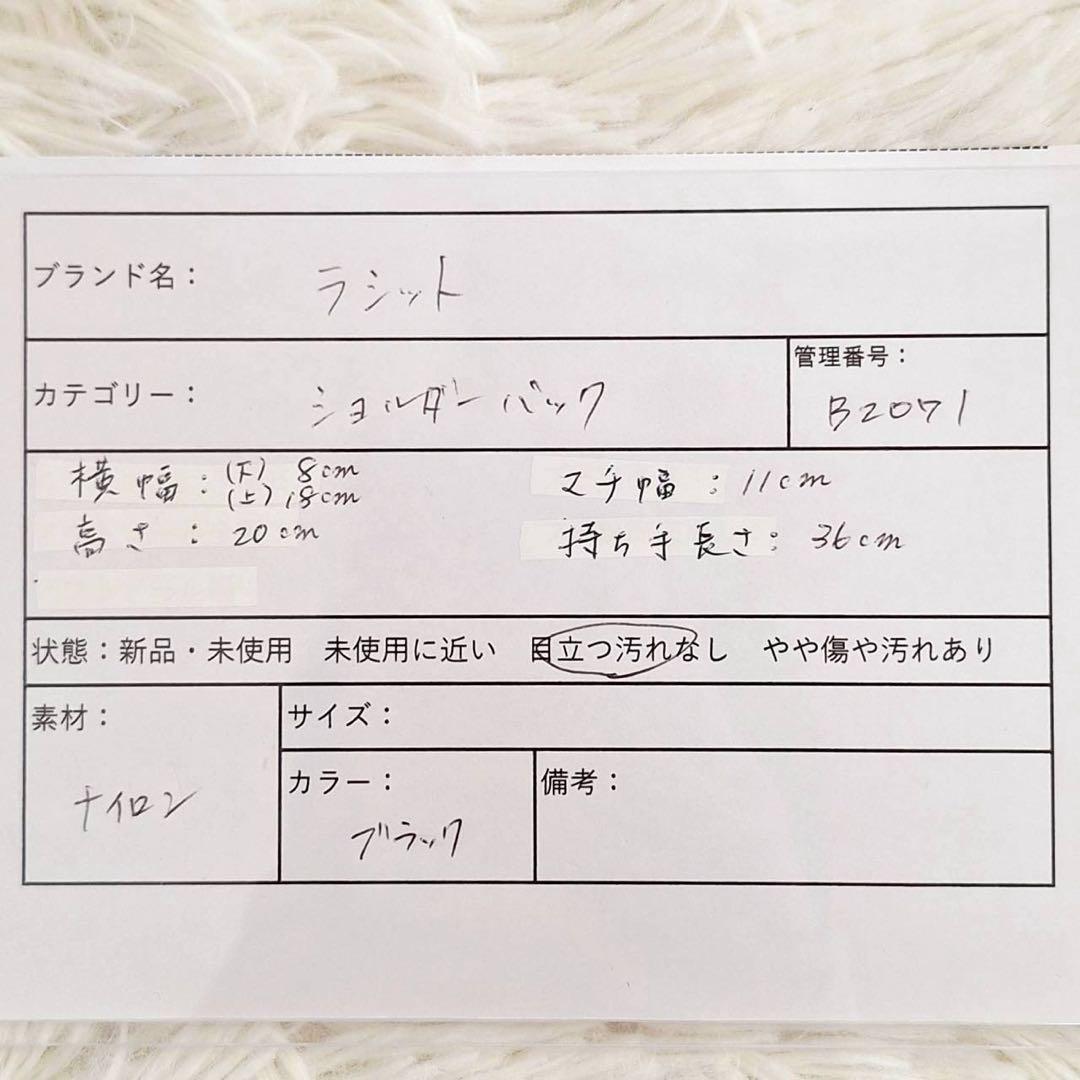 ブランド名： ラシット
カテゴリー： ショルダーバック
管理番号：
B2071
横幅：(下) 8cm
(上) 18cm
マチ幅：11cm
高さ：20cm
持ち手長さ：36cm
状態：新品・未使用　未使用に近い　目立つ汚れなし　やや傷や汚れあり
素材：
ナイロン
サイズ：
カラー：
ブラック
備考：